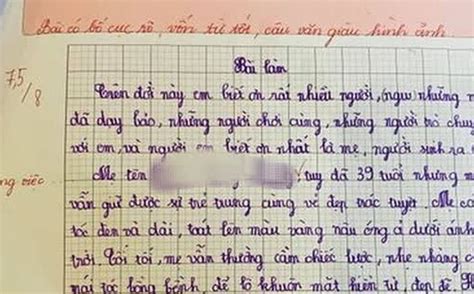 Bài có bố cục rõ, vốn từ tốt, câu văn giàu hình ảnh
Bài làm
7,5/8
Trên đời này em biết ơn rất nhiều người, (ngư) những
đã dạy bảo, những người chơi cùng, những người trò chu
với em, và người em biết ơn nhất là mẹ, người sinh ra
Mẹ tên tuy đã 39 tuổi nhưng m
ng việc
vẫn giữ được sự trẻ trung cùng vẻ đẹp trác tuyệt. Mẹ có
tóc đen và dài, toát lên màu vàng nâu óng ả dưới ánh
trời. Tối tối, mẹ vẫn thường cầm chiếc lược, nhẹ nhàng
mái tóc bồng bềnh, để lộ khuôn mặt hiền từ, đẹp đẽ.